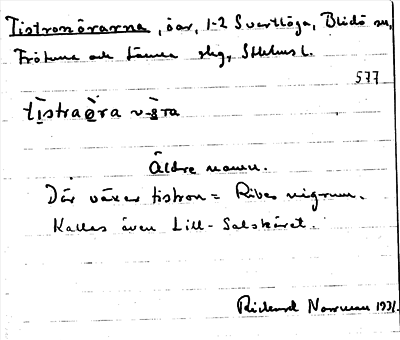 Tistronörarna, öar, 1-2 Svartlöga, Blidö sn,
Frötuna och Länna skg, Sthlms l.
577
tìstraö̀ra
Äldre namn.
Där växer tistron = Ribes nigrum.
Kallas även Lill-Salskäret.
Richard Norrman 1931.